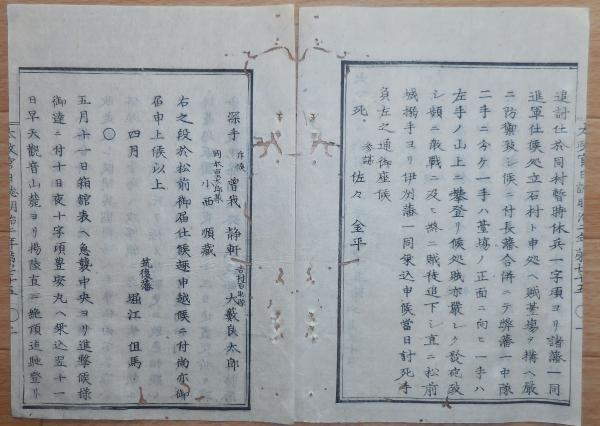 追討仕於同村暫時休兵一字頃ヨリ諸藩一同
進軍仕候処立石村ト申処ヘ賊臺場ヲ構ヘ嚴
ニ防禦致シ候ニ付長藩合併ニテ弊藩一中隊
二手ニ分ケ一手ハ臺場ノ正面ニ向ヒ一手ハ
左手ノ山上ニ攀登リ候処賊亦嚴シク發砲致
シ頻ニ激戰ニ及ヒ終ニ賊徒追下シ直ニ松前
城搦手ヨリ伊州藩一同乗込申候當日討死手
負左之通御座候
死 参謀 佐々 金平
深手 曽我 静軒 大藪良太郎
小西 順藏
右之段於松前御届仕候趣申越候ニ付尚亦御
届申上候以上
四月 筑後藩 堀江 但馬
〇
五月十一日箱館表ヘ急襲中央ヨリ進撃候様
御達ニ付十日夜十字頃豊安丸ヘ乗込翌十一
日早天觀音山麓ヨリ揚陸直ニ絶頂追馳登リ
太政官日誌明治二年第七十五